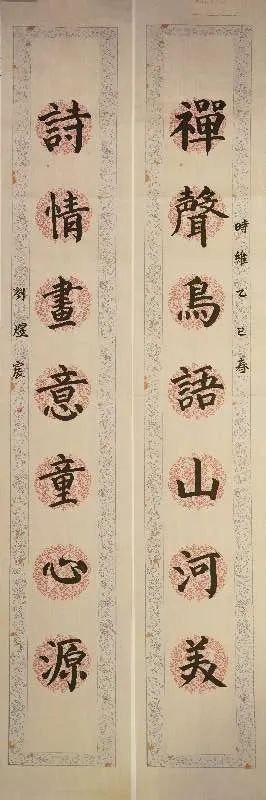 時維乙巳春
禪聲鳥語山河美
詩情畫意童心源
劉煜宸